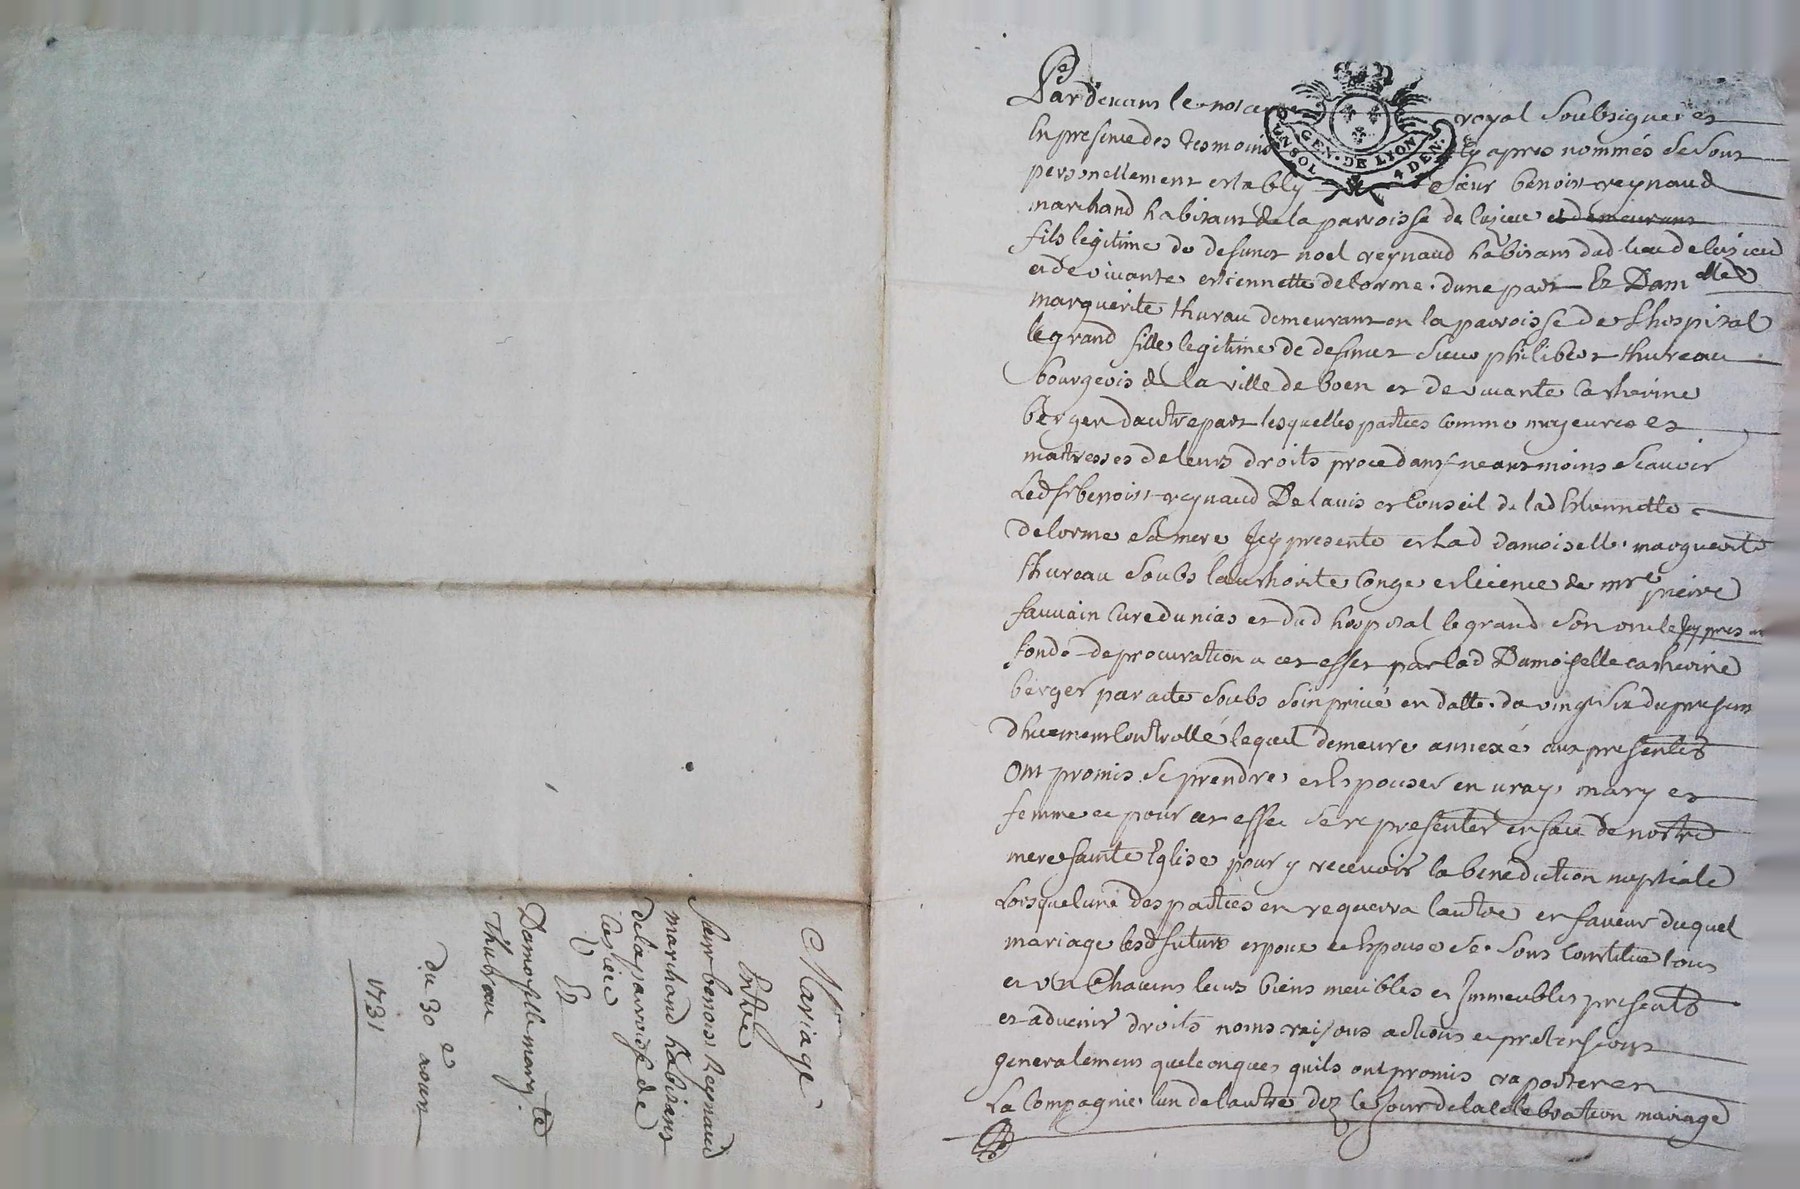 Mariage
Entre
Sieur benoist Reynaud
marchand habitant
de la parroisse de
Luzieu
Et
Damoiselle marg.te
Thureau
du 30e aoust
1731
Pardevant le notaire royal soubsigné et
En presence des tesmoins cy apres nommés se sont
personnellement estably Sieur benoist reynaud
marchand habitant de la parroisse de Luzieu et demeurant
fils legitime de defunct noel reynaud habitant dud lieu de luzieu
et de vivante estiennette delorme d'une part Et Damlle
marguerite thurau demeurant en la parroisse de Lhospital
legrand fille legitime de defunct Sieur philibert thureau
bourgeois de la ville de boen et de vivante Catherine
berger dautre part lesquelles parties comme majeures et
maitresses de leurs droits procedant neantmoins scavoir
Led Sr benoist reynaud De lavis et Conseil de lad Estiennette
delorme sa mere Icy presente et Lad damoiselle marguerite
thureau soubs lauthorite Conge et licence de mre pierre
fauvain Cure dunias et dud hospital legrand son oncle Icy present
fondé de procuration a cet effet par lad Damoiselle catherine
berger par acte soubs sein privé en datte du vingt six du present
dhuement Controllé lequel demeure annexé aux presentes
Ont promis se prendre et Espouser en vray mary et
femme et pour cet effet se representer en face de nostre
mere sainte Eglise pour y recevoir la benediction nuptiale
Lorsquelune des parties en requerra lautre en faveur duquel
mariage lesd futurs espoux et Espouse se sont Constitué tous
et un Chacuns leurs biens meubles et Immeubles presents
et advenir droits noms raisons actions et pretensions
generalement quelconques quils ont promis raporter en
La Compagnie lun de lautre dez le Jour de la celebration mariage
GEN. DE LYON
4 DEN.